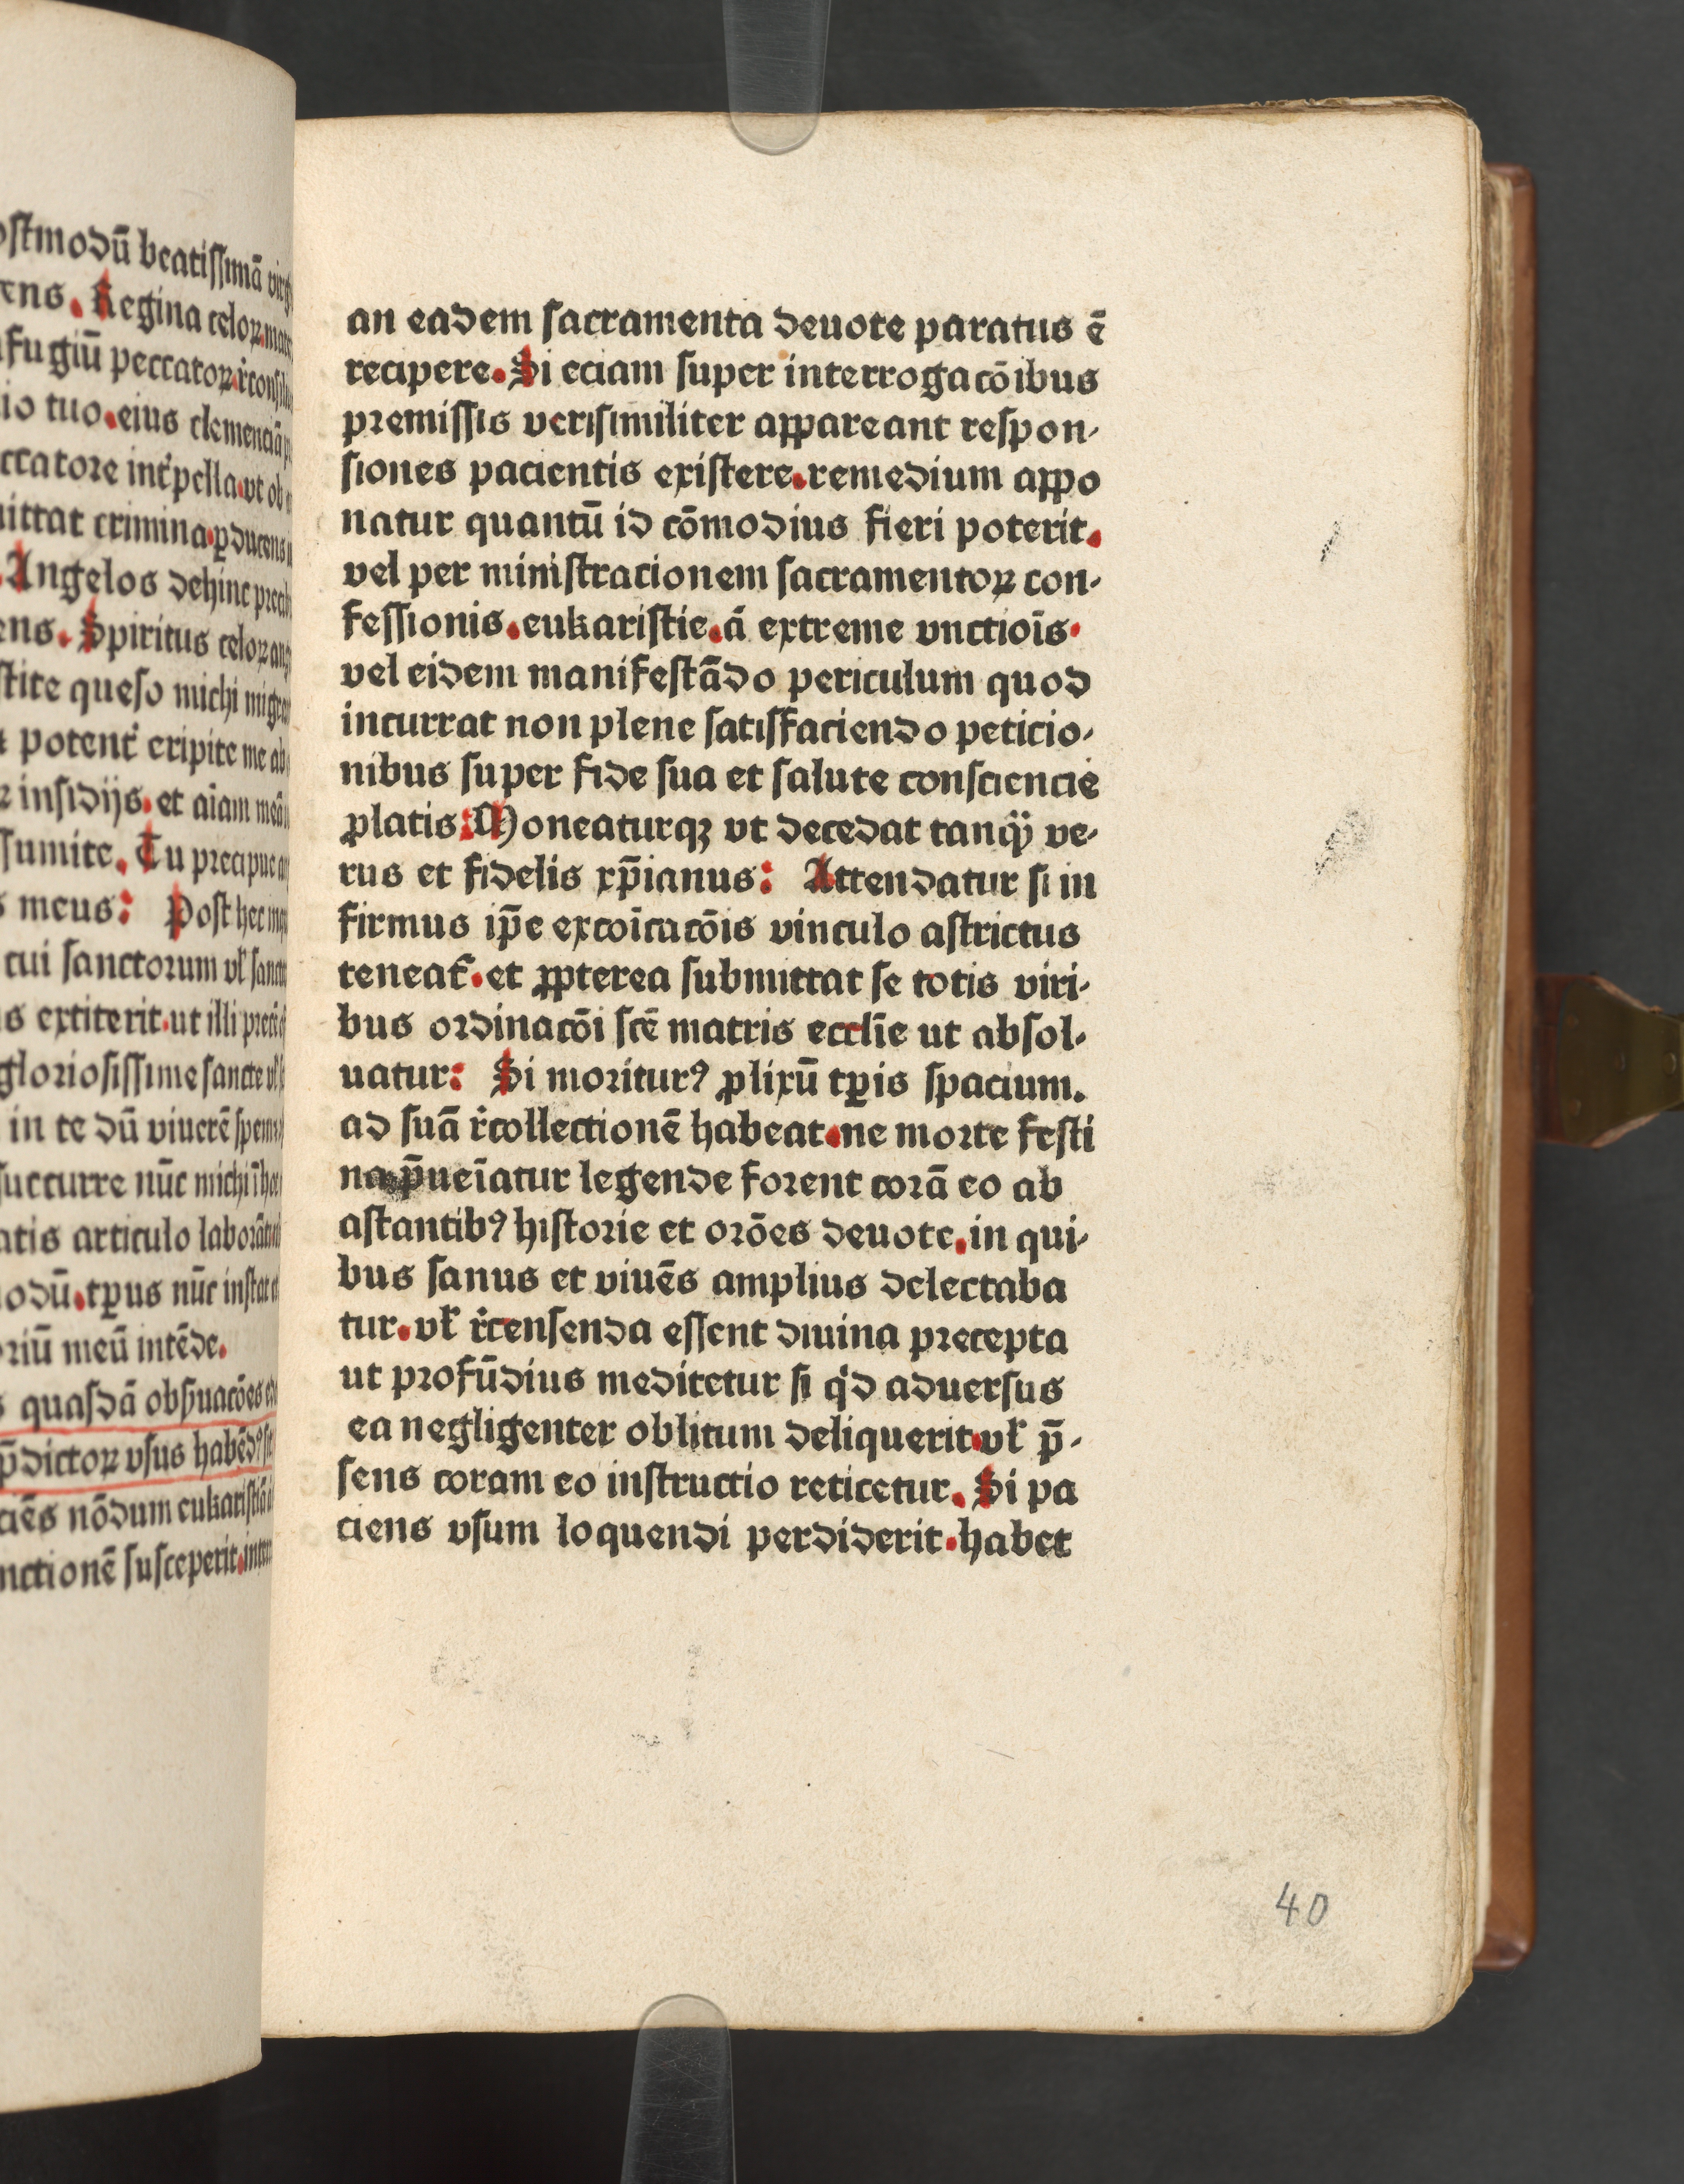 ostmodū beatissimā
ens. Regina celoꝝ.
fugiū peccatoꝝ.
io tuo.eius clemenciā
ccatore int̉pella.vt ob
ittat crimina.ꝑducens
.Angelos dehinc
ens. Spiritus celoꝝ
stite queso michi
potent̉ eripite me ab
insidijs. et aīam meā
sumite. Tu precipue
s meus: Post hec
tui sanctorum vl̉
s extiterit.ut illi
gloriosissime sancte vl̉
in te dū viuerē spem
succurre nūc michi
atis articulo
odū.tꝑus nūc instat
riū meū intēde.
s quasdā obſuacōes
p̄dictoꝝ vsus habēdꝰ
ciēs nōdum eukaristiā
nctionē susceperit.
an eadem sacramenta deuote paratus ē
recipere. Si eciam super interrogacōibus
premissis verisimiliter appareant respon-
siones pacientis existere.remedium appo
natur quantū id cōmodius fieri poterit.
vel per ministracionem sacramentoꝝ con-
fessionis.eukaristie.ā extreme vnctioīs.
vel eidem manifestādo periculum quod
incurrat non plene satisfaciendo peticio-
nibus super fide sua et salute consciencie
ꝓlatis: Moneaturqꝫ vt decedat tanqꝫ ve-
rus et fidelis xp̄ianus: Attendatur si in
firmus ip̄e excoīcacōis vinculo astrictus
teneat̉.et ꝓpterea submittat se totis viri-
bus ordinacōi scē matris eccl̄ie ut absol-
uatur: Si moriturꝰ ꝓlixū tꝑis spacium.
ad suā r̉collectionē habeat.ne morte festi
na p̄ueīatur legende forent corā eo ab
astantibꝰ historie et orōes deuote.in qui-
bus sanus et viuēs amplius delectaba
tur.vl̉ r̉censenda essent diuina precepta
ut profūdius meditetur si qͥd aduersus
ea negligenter oblitum deliquerit.vl̉ p̄-
sens coram eo instructio reticetur. Si pa
ciens vsum loquendi perdiderit.habet
40